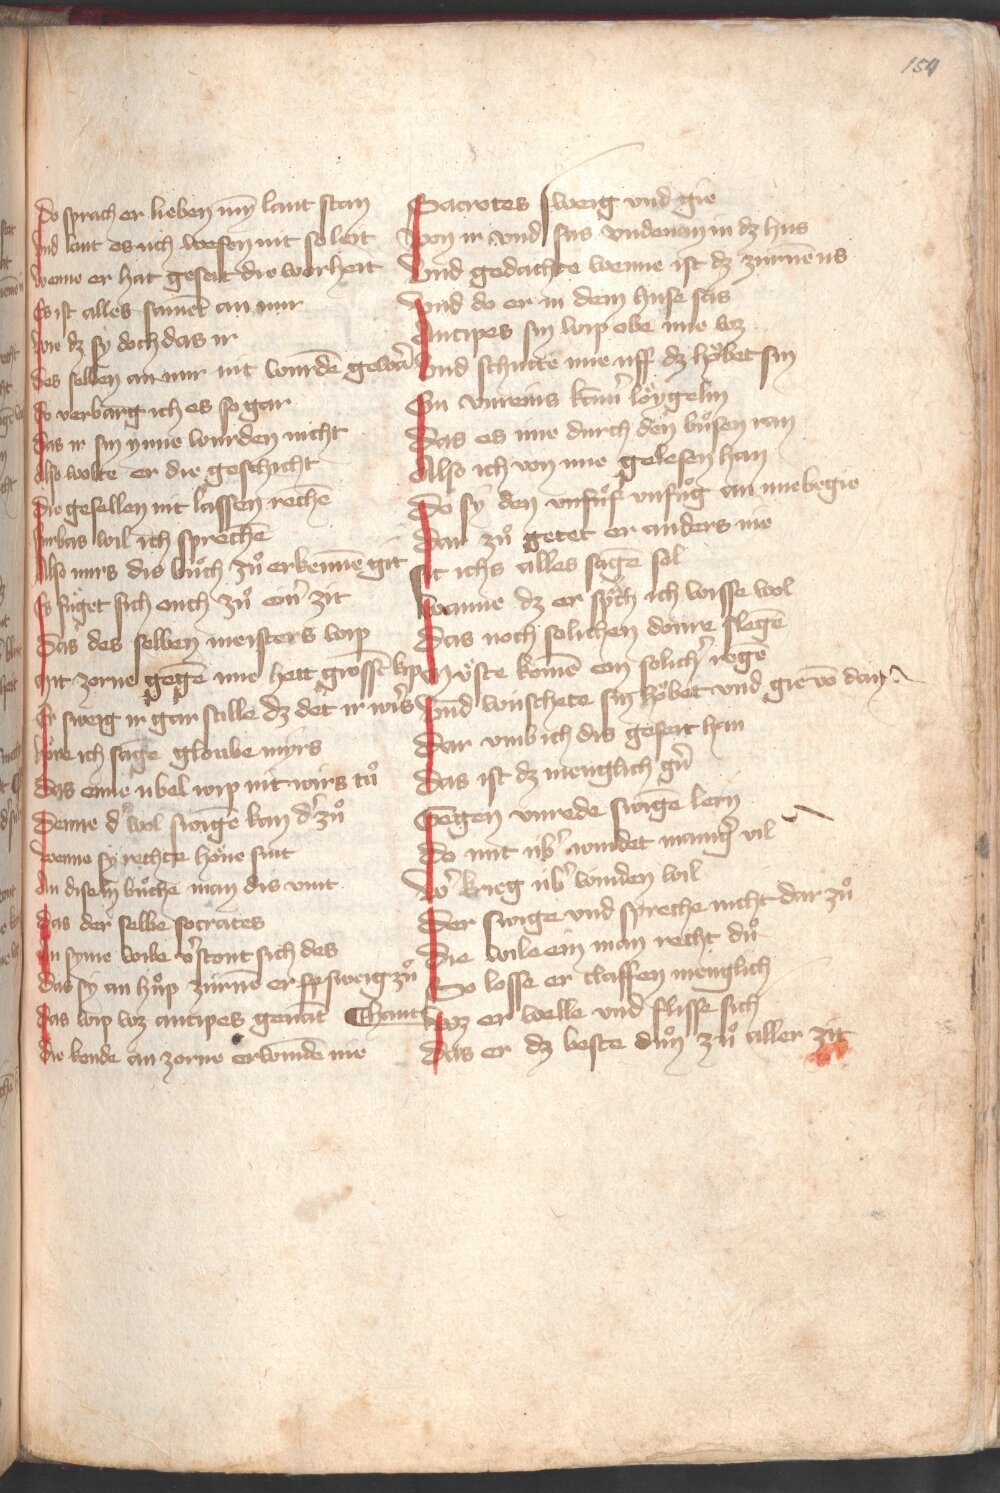 154
Do sprach er lieben myn̄ lant stan
Vnd lant es uch wesen nit so leit
Wenne er hat geseit die worheit
Es ist alles samēt an mir
Wie dz sy doch das ir
Des selben an mir nit wurdē gewar̄
So verbarg ich es so gar
Das ir sin ynne wurden nicht
Also wolte er die geschicht
Die gesellen nit lassen rechē
Furbas wil ich sprechē
Also mirs dis bůch zů erkennē git
Es fůget sich ouch zů ein̄ zit
Das des selben meisters wip
Mit zorne gegē ime hett grossē kip
Er sweig ir gar stille dz det ir wirs
Hőre ich sagē gloube mirs
Das eime ubel wip nit wirs tů
Denne d' wol swigē kan d'zů
Wenne sy rechte hőne sint
An disem bůche man dis vint
Das der selbe socrates
An syme wibe v'stont sich des
Das sy an hůp zurnē er sweig zů
Das wip wz antipes genāt
Die konde an zorne erwindē nie
Socrotes sweig vnd gie
Von ir vnd sas vndenan in dz hus
Vnd gedachte wenne ist dz zurnē us
Vnd do er in dem huse sas
Antipes sin wip obe ime wz
Vnd schutte ime uff dz hőbet sin
Ein vnreins kam' lőygelin
Das es ime durch den bůsen ran
Also ich von ime gelesen han
Do sy den vnfůg an ime begie
Dar zů getet er anders nie
Sit ichs alles sagē sol
Wanne dz er spch ich wisse wol
Das noch solichen donre slegē
Můste komē ein solich' regē
Vnd wuschete sin hőbet vnd gie vō dan
Dar vmb ich dis geseit han
Das ist dz menglich g'
Gegen vnrede swigē lern
Do mit ub' windet manig' vil
W' krieg ub' winden wil
Der swige vnd spreche nicht dar zů
Die wile ein man recht dů
So losse er claffen menglich
Waz er welle vnd flisse sich
Das er dz beste důn zů aller zit